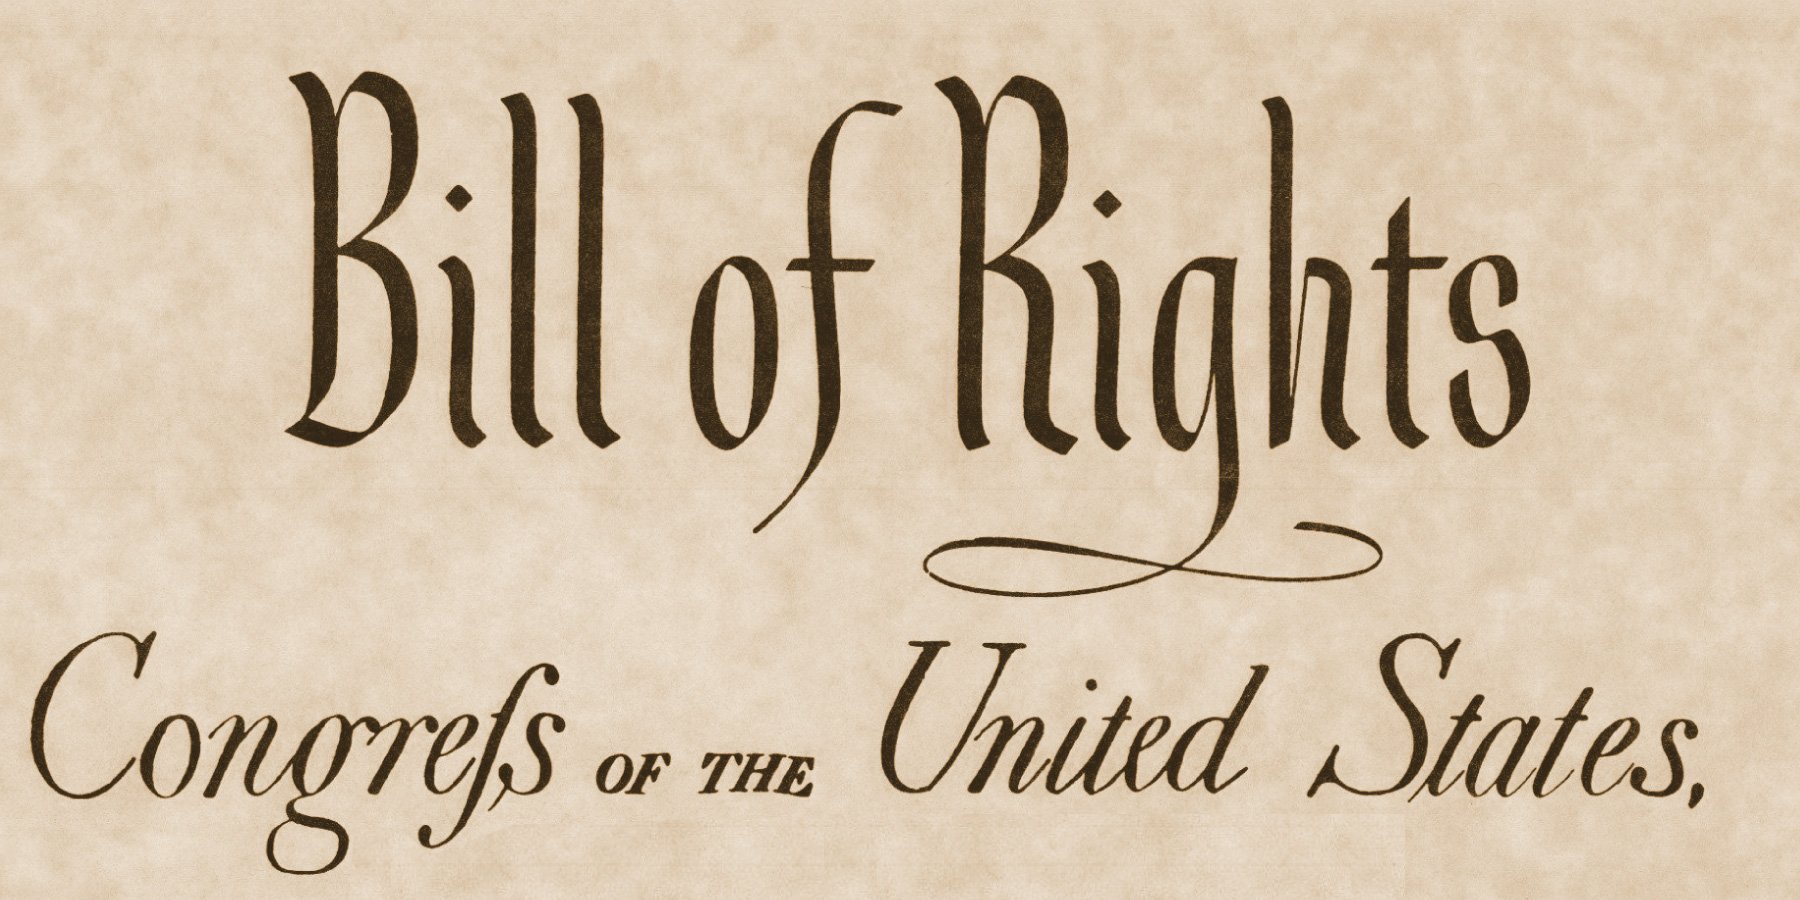 Bill of Rights
Congreſs OF THE United States,